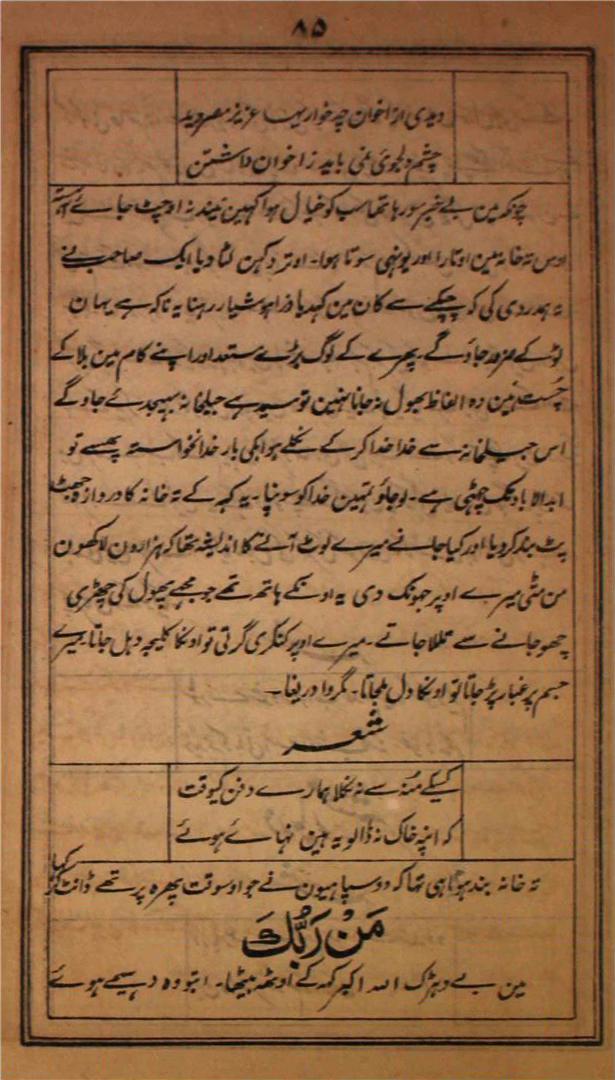 ۸۵
دیدی از اخوان چه خواریها عزیز مصر دید
چشم دلجوئی نمی باید ز اخوان داشتن
چونکہ مین بے خبر سو رہا تھا سب کو خیال ہوا کہین نیند نہ اوچٹ جائے
اوس تہ خانہ مین اوتارا اور یونہی سوتا ہوا۔ اوتر دکہن لٹا دیا ایک صاحب نے
یہ ہمدردی کی کہ چپکے سے کان مین کہدیا ذرا ہوشیار رہنا یہ ناکہ ہے یہان
ٹوکے ضرور جاؤگے۔ پہرے کے لوگ بڑے مستعد اور اپنے کام مین بلا کے
چُست ہین وہ الفاظ بھول نہ جانا نہین تو سیدہے جیلخانہ بہیجدئے جاوگے
اس جیلخانہ سے خدا خدا کرکے نکلے ہو ابکی بار خدانخواستہ پھسے تو
ابدالاباد تک چھٹی ہے۔ لو جاؤ تمہین خدا کو سونپا۔ یہ کہہ کے تہ خانہ کا دروازہ جھٹ
پٹ بند کر دیا اور کیا جانے میرے لوٹ آنے کا اندیشہ تھا کہ ہزارون لاکھون
من مٹی میرے اوپر جھونک دی یہ اونکے ہاتھ تھے جو مجہے پھول کی چھڑی
چھو جانے سے تلملا جاتے۔ میرے اوپر کنکری گرتی تو اونکا کلیجہ دہل جاتا۔ میرے
جسم پر غبار پڑ جاتا تو اونکا دل ملجاتا۔ مگر وا دریغا۔
شعر
کسیکے مُنہ سے نہ نکلا ہمارے دفن کیوقت
کہ انپہ خاک نہ ڈالو یہ ہین نہائے ہوئے
تہ خانہ بند ہوتا ہی تھا کہ دو سپاہیون نے جو اوسوقت پہرہ پر تھے ڈانٹ کر کہا
مَنْ رَبُّكَ
مین بے دہڑک اللہ اکبر کہہ کے اوٹھ بیٹھا۔ ابتو وہ دہیمے ہوئے